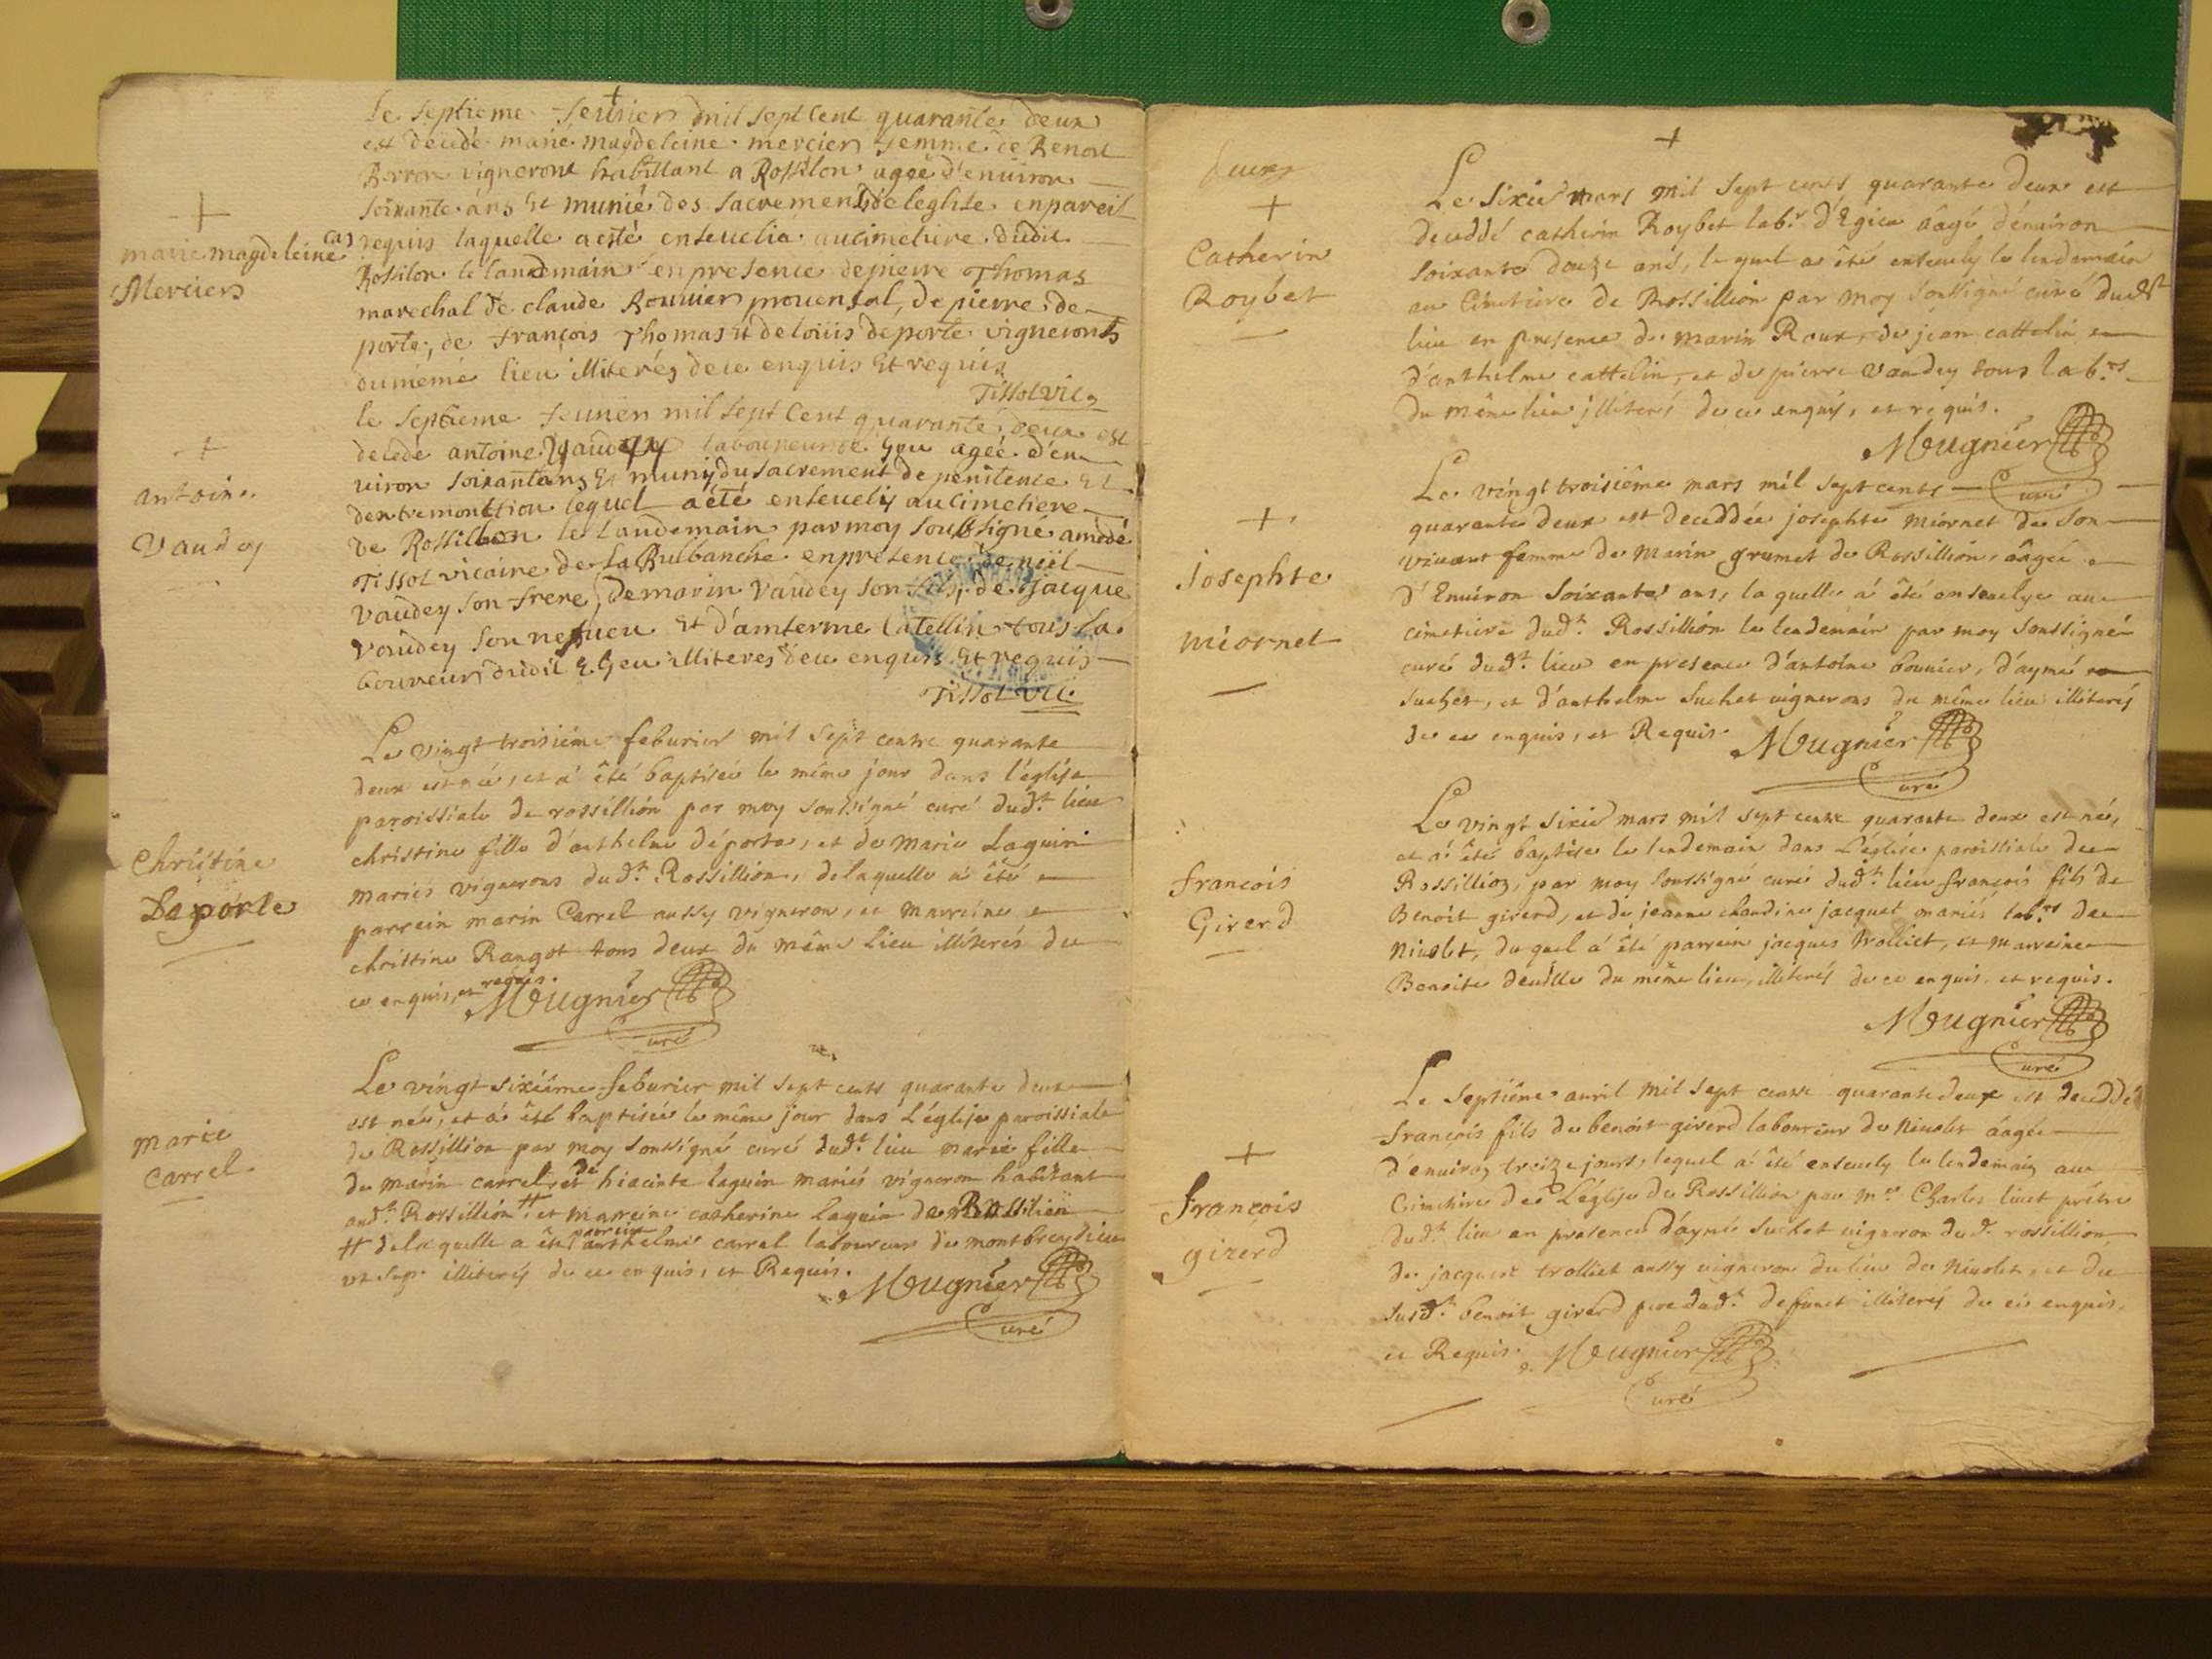 Le septieme feuvrier mil sept cent quarante deux
est decedé marie magdeleine mercier femme de Benoit
vigneront habittant a Rossilon agée d'environ
soixante ans et munie des sacrements de leglise en pareil
cas requis laquelle a esté ensevelie au cimetiere dudit
Rossilon le landemain en presence de pierre Thomas
marechal de claude Rouvier provensal, de pierre de-
porte, de françois Thomas et de loüis deporte vignerons
du méme lieu illiterés de ce enquis et requis
Tissot vic.
marie magdeleine
Mercier
le septieme feuvrier mil sept cent quarante deux est
decedé antoine Vaudey laboureur agée d'en
viron soixante ans et muny du sacrement de penitence et
dextremonttion lequel a été ensevely au cimetiere
de Rossillon le landemain par moy soubsigné amedé
Tissot vicaire de La Bulbanche en presence de
vaudey son frere, de marin vaudey son fils, de jacque
vaudey son neyueu et d'amterme Catellin tous la
boureurs dudit illiteres de ce enquis et requis
Tissot vic.
antoine
Vaudey
Le vingt troisiéme feburier mil sept cents quarante
deux est née, et a été baptisée le même jour dans l'église
paroissiale de rossillion par moy soussigné curé dud.t lieu
christine fille d'anthelme déporte, et de marie Laguin
mariés vignerons dud.t Rossillion, de laquelle a été
parrein marin Carrel aussy vigneron, et marreine
christine Rangot tous deux du même lieu illiterés de
ce enquis, et requis.
Meugnier
curé
Christine
Deporte
Le vingt sixiéme feburier mil sept cents quarante deux
est née, et a été baptisée le même jour dans L'église paroissiale
de Rossillion par moy soussigné curé dud.t lieu marie fille
de marin carrel, et de hiacinte laguin mariés vigneron habitant
aud.t Rossillion # et marreine catherine laguin de Rossillien
# de laquelle a été parrein anthelme carrel laboureur de
ut sup. illiterés de ce enquis, et Requis.
Meugnier
curé
marie
Carrel
Le sixie mars mil sept cents quarante deux est
deceddé catherin Roybet lab.r d'Egieu âagé d'environ
soixante douze ans, lequel a été ensevely le lendemain
au Cimetiere de Rossillion par moy soussigné curé dud.t
lieu en presence de marin Roux, de jean cattelin
d'anthelme cattelin, et de pierre vaudey tous lab.rs
du même lieu illiterés de ce enquis, et requis.
Meugnier
curé
Catherin
Roybet
Le vingt troisiême mars mil sept cents
quarante deux est deceddée josephte miornet de son
vivant femme de marin grumet de Rossillion, âagée
d'Environ soixante ans, la quelle a été ensevelye au
cimetiere dud.t Rossillion le lendemain par moy soussigné
curé dud.t lieu en presence d'antoine bouvier, d'aymé
suchet, et d'anthelme suchet vignerons du même lieu illiterés
de ce enquis, et Requis.
Meugnier
curé
Josephte
miornet
Le vingt sixie mars mil sept cents quarante deux est né,
et a été baptisé le lendemain dans L'église paroissiale de
Rossillion, par moy soussigné curé dud.t lieu françois fils de
Benoit girerd, et de jeanne claudine jacquet mariés lab.rs de
Nivolet, du quel a été parrein jacques trolliet, et marreine
Benoite du même lieu, illiterés de ce enquis, et requis.
Meugnier
curé
francois
Girerd
Le septiême avril mil sept cents quarante deux est deceddé
françois fils de benoit girerd laboureur de Nivolet âagée
d'environ treize jours, lequel a été ensevely le lendemain au
Cimetiere de L'église de Rossillion par m.re Charles livet prêtre
dud.t lieu en presence d'aymé suchet vigneron dud.t rossillion
de jacques trolliet aussy vigneron du lieu de Nivolet, et du
susd.t benoit girerd pere dud.t deffunct illiterés de ce enquis,
et Requis. Meugnier
curé
françois
girerd